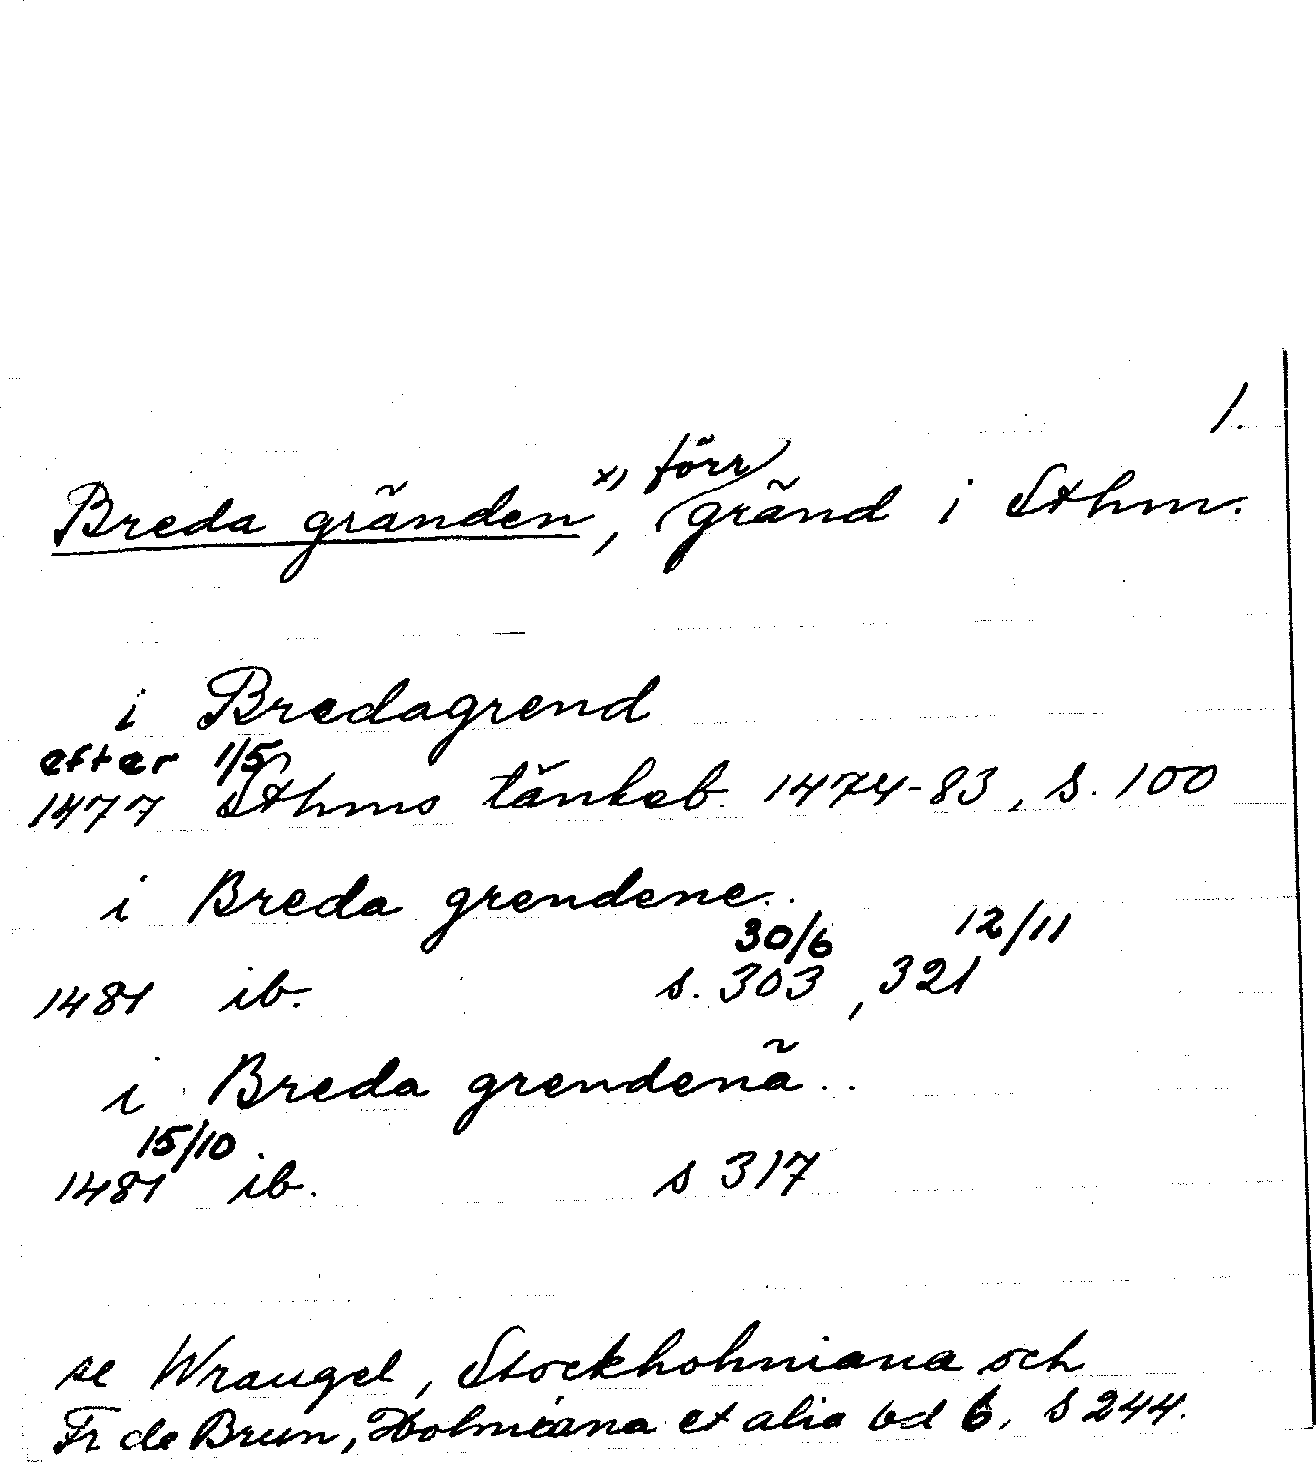 1.
Breda gränden x), förr gränd i Sthm.
i Bredagrend
efter 1/5
1477 Sthms tänkeb. 1474-83, s. 100
i Breda grendene..
30/6 12/11
1481 ib. s. 303, 321
i Breda grendenä..
15/10.
1481 ib. s 317
se Wrangel, Stockholmiana och
Fr de Brun, Holmiana et alia bd 6, s 244.